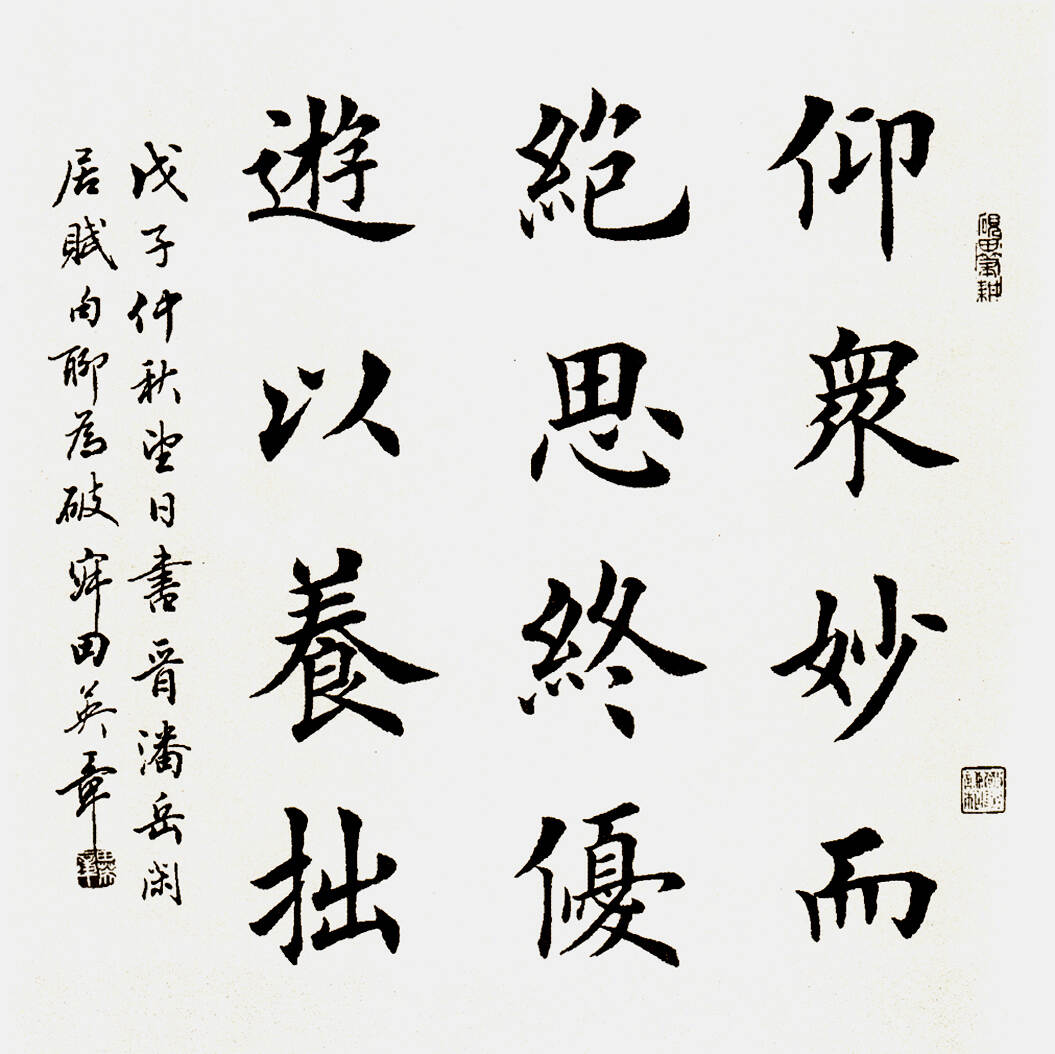 仰衆妙而
絕思終優
遊以養拙
戊子仲秋望日書晉潘岳閑
居賦句聊為破寂田英章
硯田筆耕